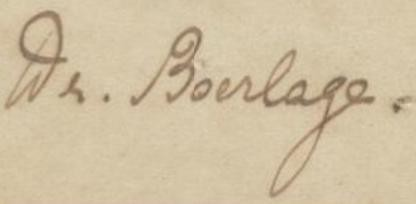 Dr. Boerlage.